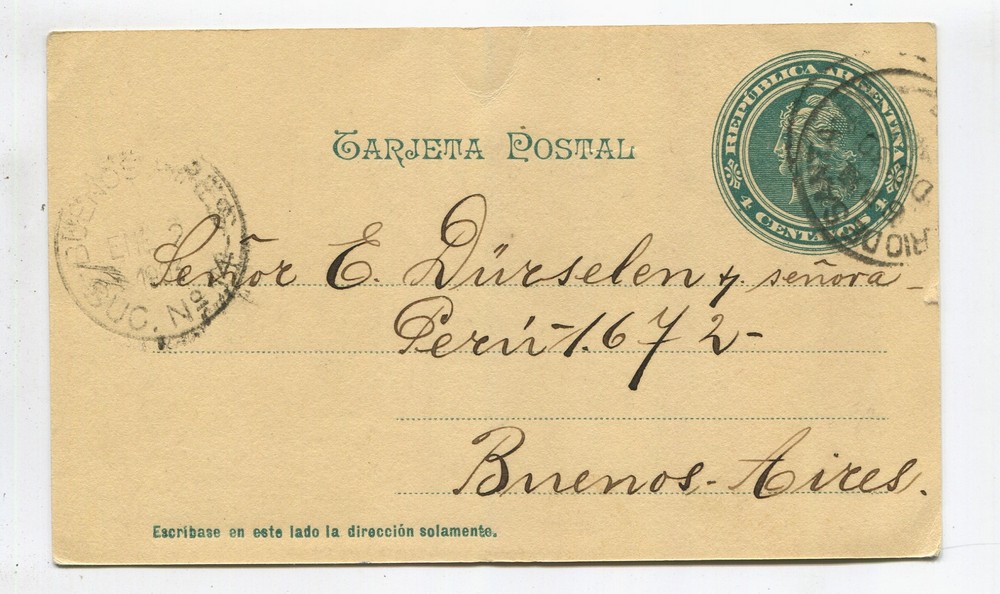 TARJETA POSTAL
REPÚBLICA ARGENTINA
4 CENTAVOS 4
BUENOS AIRES
ENE 2
SUC. Nº
Señor E. Dürselen y señora
Perú-1672-
Buenos-Aires.
Escríbase en este lado la dirección solamente.